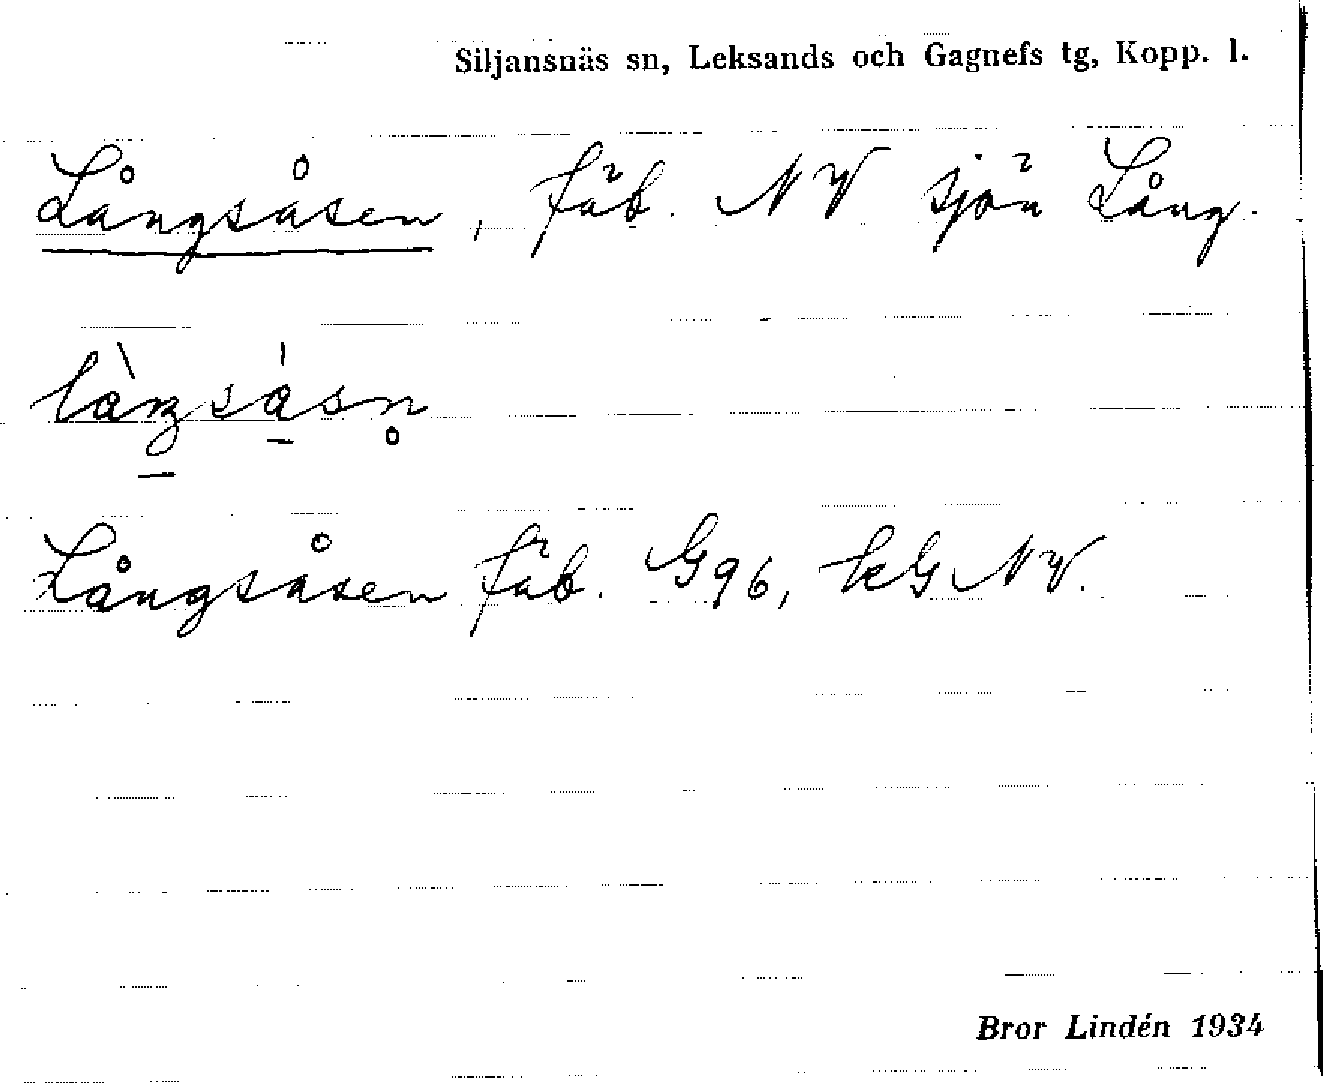 Siljansnäs sn, Leksands och Gagnefs tg, Kopp. l.
Långsåsen, fäb. NV sjön Lång.
Långsåsen fäb. G96, kG NV.
Bror Lindén 1934